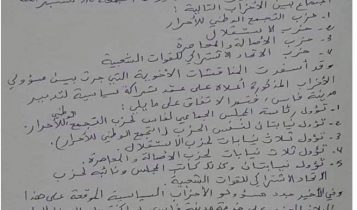 اجتماع بين الأحزاب التالية :
1- حزب التجمع الوطني للأحرار
2- حزب الاستقلال
3- حزب الأصالة والمعاصرة
4- حزب الاتحاد الاشتراكي للقوات الشعبية
وقد أسفرت المناقشات الأخوية التي جرت بين مسؤولي
الأحزاب المذكورة أعلاه على عقد شراكة سياسية لتدبير
مدينة فاس، فتم الاتفاق على مايلي :
1- تؤول رئاسة المجلس الجماعي لفاس لحزب التجمع الوطني للأحرار.
2- تؤول نيابتان لنفس الحزب (التجمع الوطني للأحرار).
3- تؤول ثلاث نيابات لحزب الاستقلال.
4- تؤول ثلاث نيابات لحزب الأصالة والمعاصرة.
5- تؤول نيابتان وكذلك كاتب المجلس ونائبه لحزب
الاتحاد الاشتراكي للقوات الشعبية
وفي الأخير جدد مسؤولو الأحزاب السياسية الموقعة على هذا